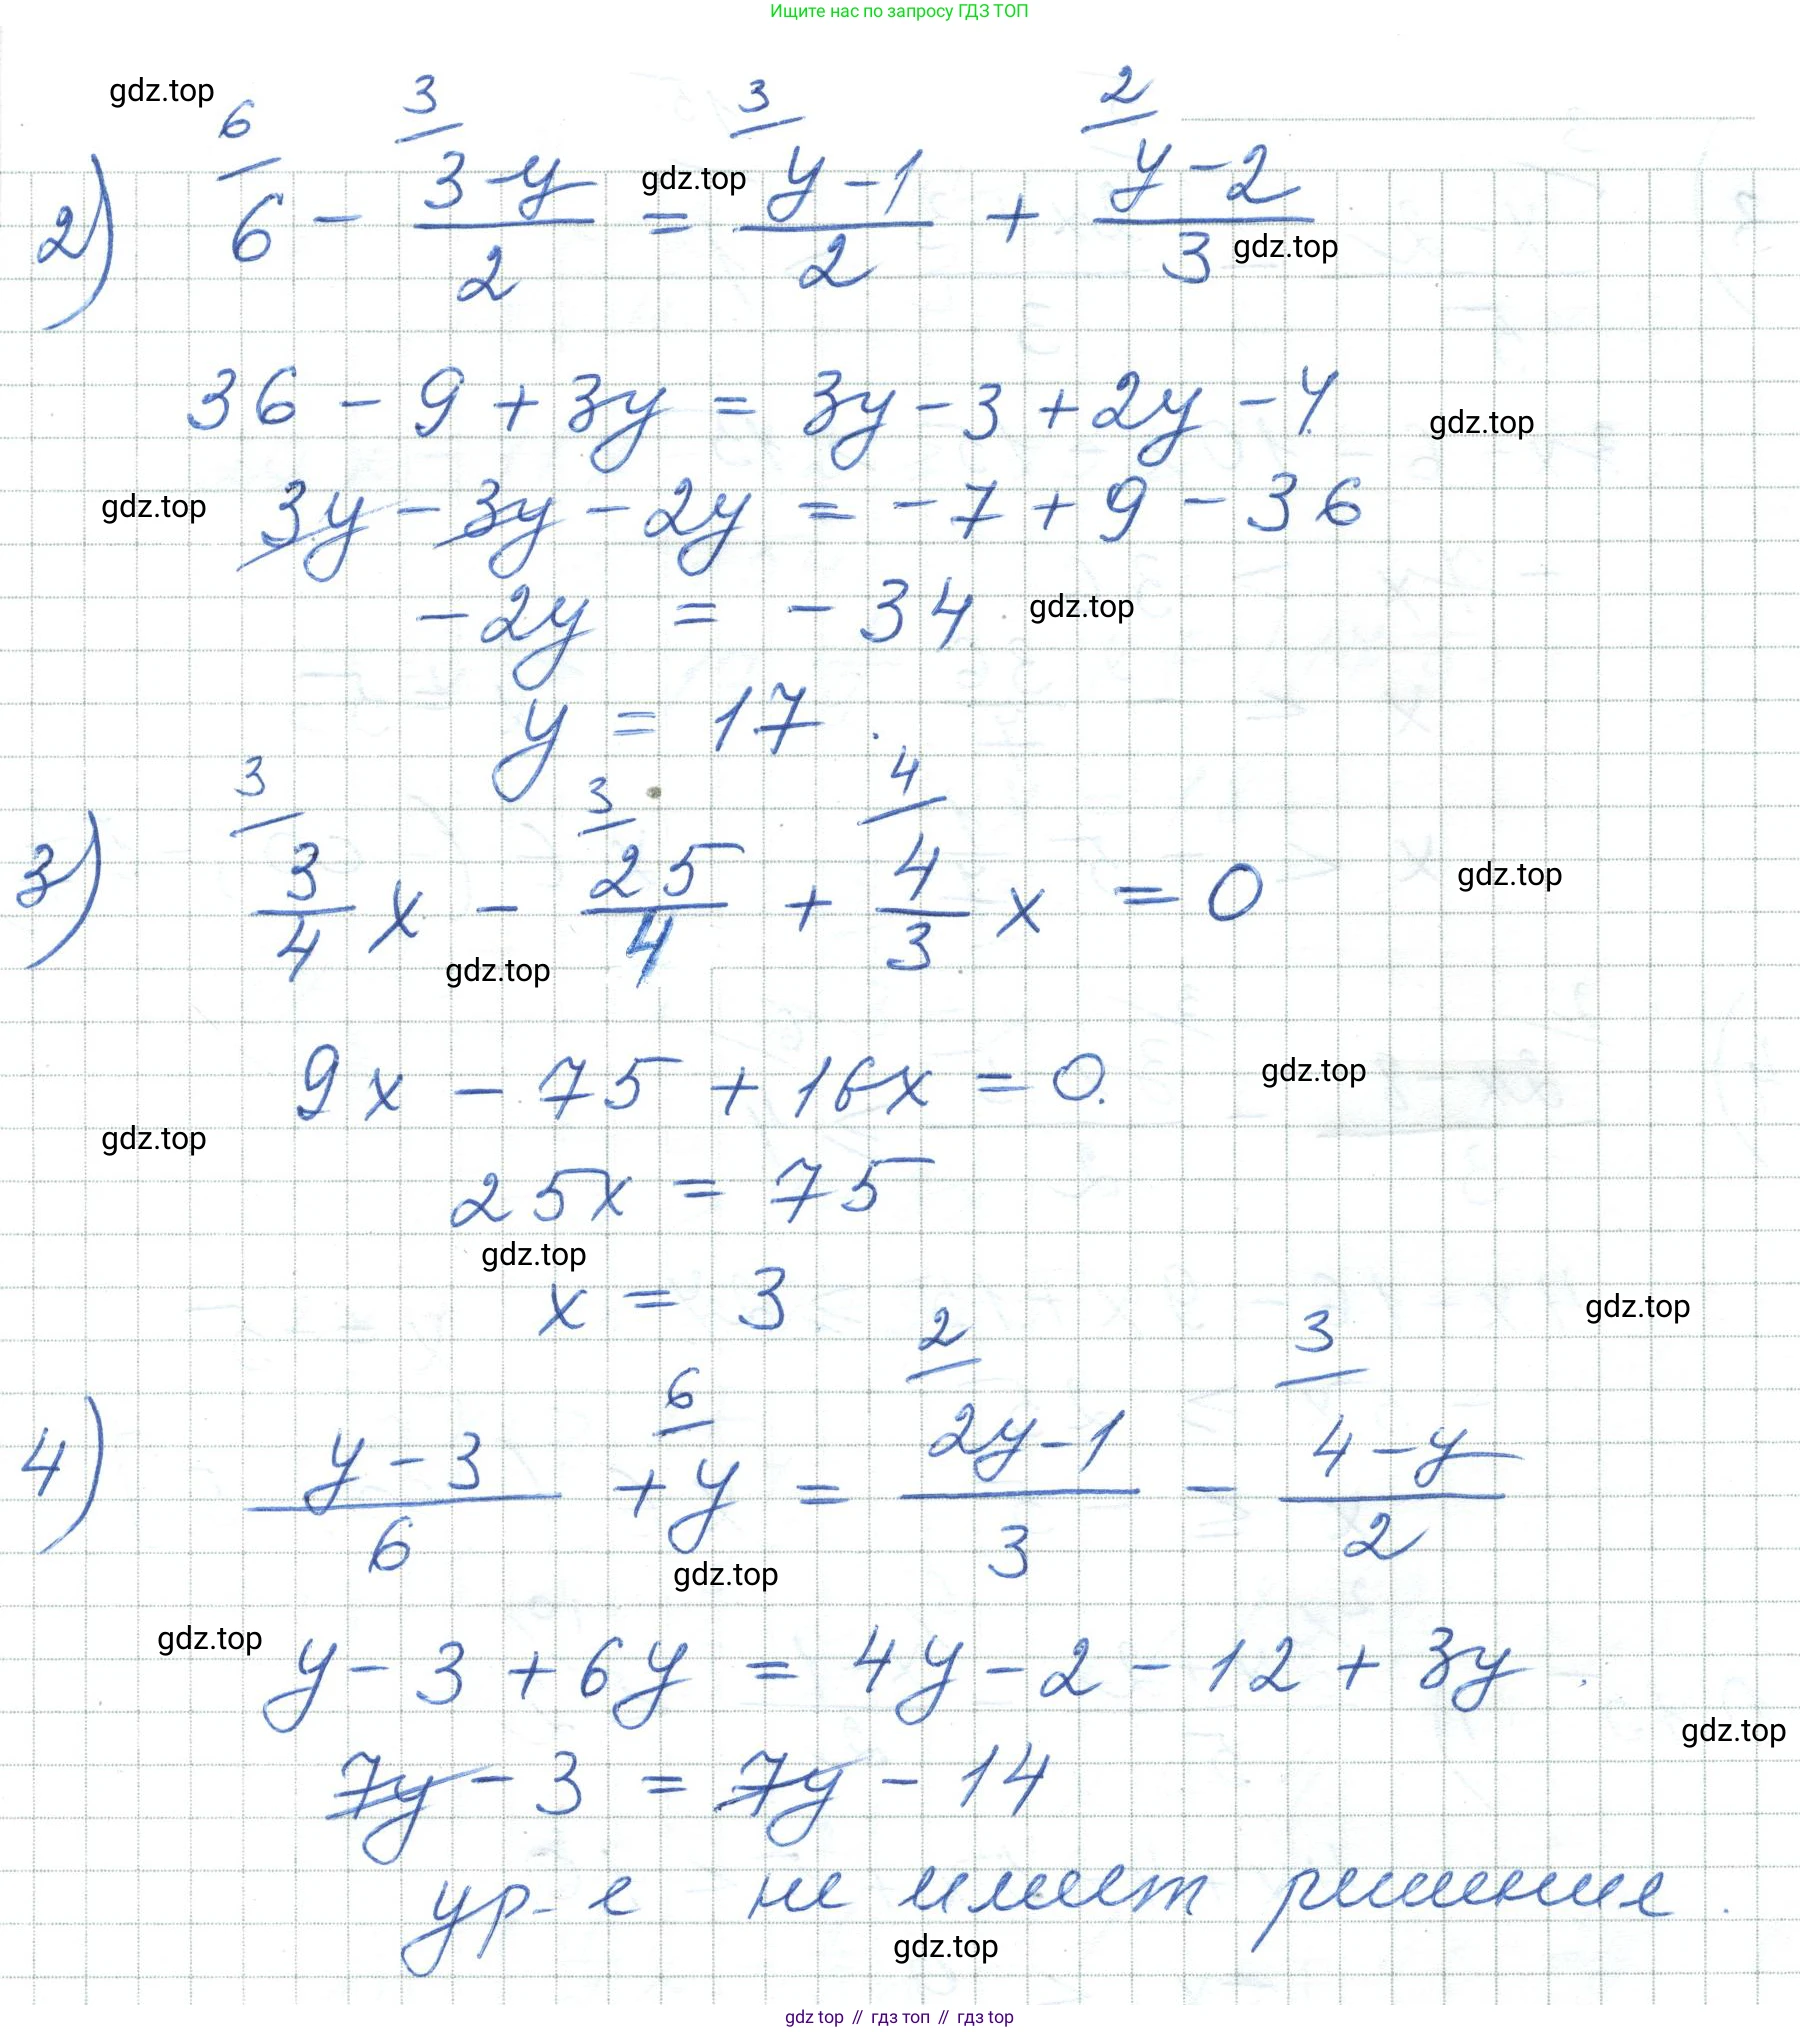 Ищите нас по запросу ГДЗ ТОП
gdz.top
6 3 3 2
2) 6 - (3-y)/2 = (y-1)/2 + (y-2)/3
gdz.top
gdz.top
36 - 9 + 3y = 3y - 3 + 2y - 4
gdz.top
gdz.top
3y - 3y - 2y = -7 + 9 - 36
-2y = -34
gdz.top
y = 17
3 3 4
3) 3/4 x - 25/4 + 4/3 x = 0
gdz.top
gdz.top
9x - 75 + 16x = 0.
gdz.top
gdz.top
25x = 75
gdz.top
x = 3
gdz.top
6 2 3
4) (y-3)/6 + y = (2y-1)/3 - (4-y)/2
gdz.top
gdz.top
y - 3 + 6y = 4y - 2 - 12 + 3y
gdz.top
7y - 3 = 7y - 14
ур-е не имеет решения.
gdz.top
gdz top // гдз топ // гдз top